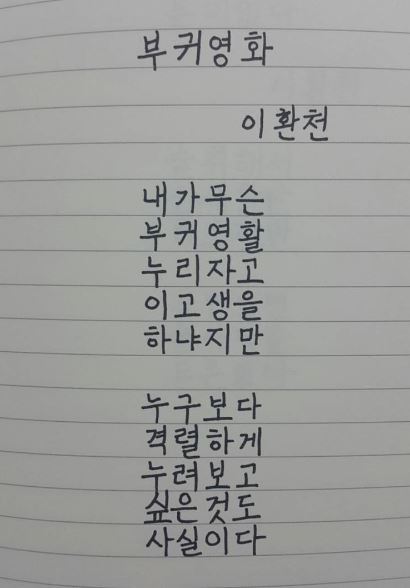 부귀영화
이환천
내가무슨
부귀영활
누리자고
이고생을
하냐지만
누구보다
격렬하게
누려보고
싶은것도
사실이다